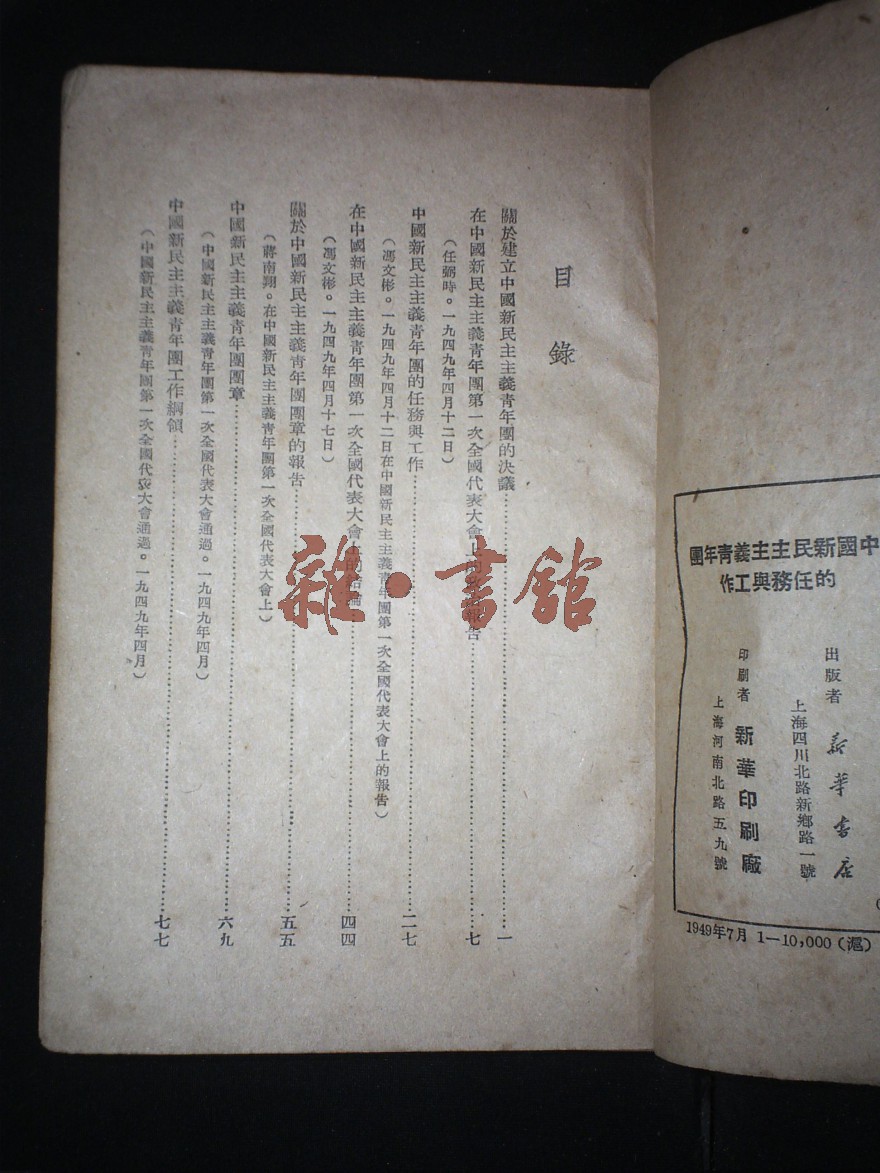 中國新民主主義青年團
的任務與工作
出版者 新華書店
上海四川北路新鄉路一號
印刷者 新華印刷廠
上海河南北路五九號
1949年7月 1—10,000(滬)
目錄
關於建立中國新民主主義青年團的決議……一
在中國新民主主義青年團第一次全國代表大會上的報告……七
(任弼時。一九四九年四月十二日)
中國新民主主義青年團的任務與工作……二七
(馮文彬。一九四九年四月十二日在中國新民主主義青年團第一次全國代表大會上的報告)
在中國新民主主義青年團第一次全國代表大會上的結論……四四
(馮文彬。一九四九年四月十七日)
關於中國新民主主義青年團團章的報告……五五
(蔣南翔。在中國新民主主義青年團第一次全國代表大會上)
中國新民主主義青年團團章……六九
(中國新民主主義青年團第一次全國代表大會通過。一九四九年四月)
中國新民主主義青年團工作綱領……七七
(中國新民主主義青年團第一次全國代表大會通過。一九四九年四月)
雜·書館